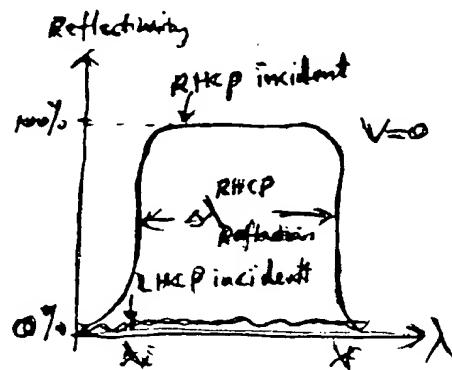 Reflectivity
RHCP incident
100%
V=0
RHCP
Δλ
Reflection
LHCP incident
0%
λi
λf
λ